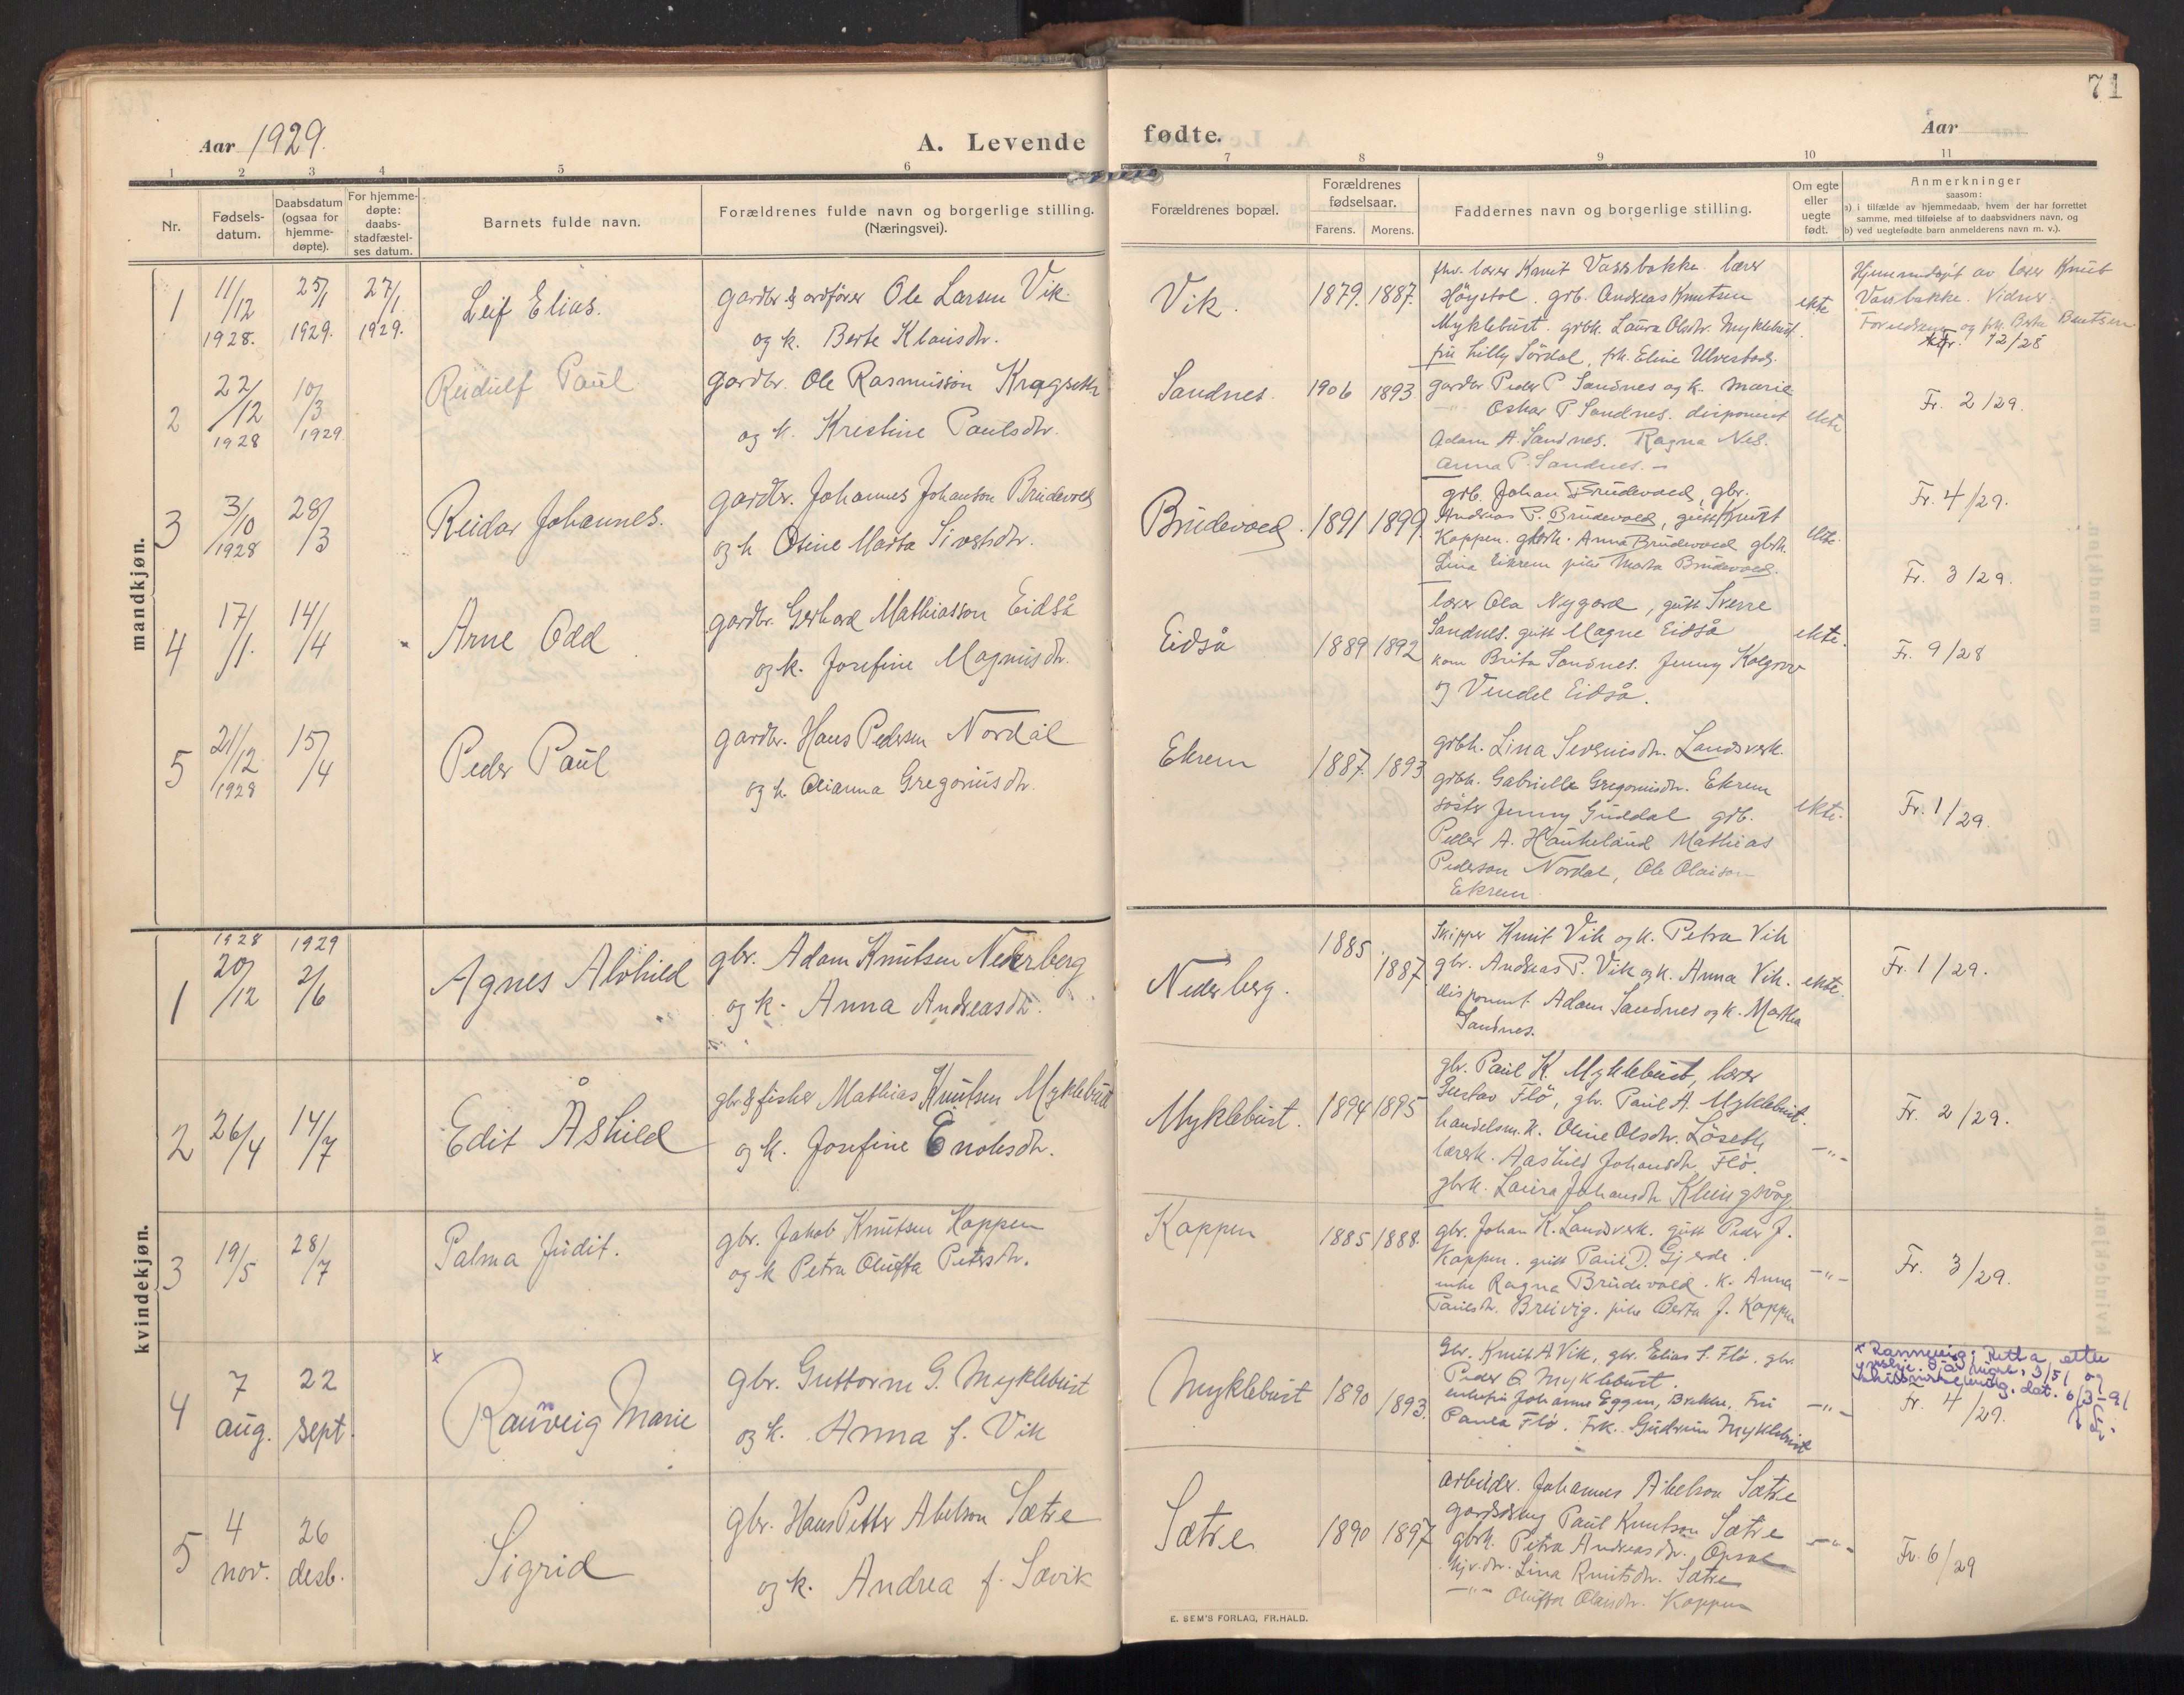 71
Aar 1929.
A. Levende
fødte.
Aar
1 2 3 4 5 6 7 8 9 10 11
Nr.
Fødsels-
datum.
Daabsdatum
(ogsaa for
hjemme-
døpte).
For hjemme-
døpte:
daabs-
stadfæstel-
ses datum.
Barnets fulde navn.
Forældrenes fulde navn og borgerlige stilling.
(Næringsvei).
Forældrenes bopæl.
Forældrenes
fødselsaar.
Farens. Morens.
Faddernes navn og borgerlige stilling.
Om egte
eller
uegte
født.
Anmerkninger
saasom:
a) i tilfælde av hjemmedaab, hvem der har forrettet
samme, med tilføielse af to daabsvidners navn, og
b) ved uegtefødte barn anmelderens navn m. v.).
mandkjøn.
1
11/12 1928.
25/1 1929.
27/1 1929.
Leif Elias.
gardbr. & ordfører Ole Larsen Vik
og k. Berte Klausdtr.
Vik.
1879. 1887.
fhv. lærer Knut Vassbakke lærer
Høystol. grb. Andreas Knutsen
Myklebust. grbk. Laura Olsdtr. Myklebust
fru Lilly Sørdal, frk. Eline Ulvestad.
ekte
Hjemmedøpt av lærer Knut
Vassbakke. Vidner.
Foreldrene og frk. Berta Bentsen
12/28
2
22/12 1928
10/3 1929
Reidulf Paul
gardbr. Ole Rasmusson Kragseth
og k. Kristine Paulsdtr.
Sandnes.
1906 1893
gardbr. Peder P. Sandnes og k. Marie
Oskar P. Sandnes. disponent
Adam A. Sandnes. Ragna Nes.
Anna P. Sandnes.
ekte
Fr. 2/29.
3
3/10 1928
28/3
Reidar Johannes.
gardbr. Johannes Johanson Brudevold
og k Oline Marta Sivertsdtr.
Brudevold.
1891 1899.
grb. Johan Brudevold, gbr.
Andreas P. Brudevold, gutt Knut
Koppen. gbrk. Anna Brudevold gbrk.
Lina Eikrem pike Marta Brudevold.
ekte
Fr. 4/29.
Fr. 3/29.
4
17/1.
14/4
Arne Odd
gardbr. Gerhard Mathiasson Eidså
og k. Josefine Magnusdtr.
Eidså
1889 1892
lærer Ola Nygard, gutt Sverre
Sandnes. gutt Magne Eidså
kone Brita Sandnes. Jenny Kolgrov
og Vendel Eidså.
ekte.
Fr. 9/28
5
21/12 1928
15/4
Peder Paul
gardbr. Hans Pedersen Nordal
og k. Olianna Gregoriusdtr.
Ekrem
1887. 1893
grbk. Lina Severinsdtr. Landsverk.
grbk. Gabrielle Gregoriusdtr. Ekrem
søster Jenny Guddal grb.
Peder A. Haukeland Mathias
Pederson Nordal, Ole Olaison
Ekrem
ekte.
Fr. 1/29.
kvindekjøn.
1
1928 20/12
1929 2/6
Agnes Alvhild
gbr. Adam Knutsen Nederberg
og k. Anna Andreasdtr.
Nederberg.
1885. 1887
skipper Knut Vik og k. Petra Vik
gbr. Andreas P. Vik og k. Anna Vik.
disponent Adam Sandnes og k. Martha
Sandnes.
ekte.
Fr. 1/29.
2
26/4
14/7
Edit Åshild
gbr. & fisker Mathias Knutsen Myklebust
og k. Josefine Enoksdtr.
Myklebust.
1894 1895
gbr. Paul K. Myklebust, lærer
Gustav Flø, gbr. Paul A. Myklebust.
handelsm. k. Oline Olsdtr. Løseth
lærerk. Aashild Johansdtr. Flø.
gbrk. Laura Johansdtr. Klungsvåg
-"-
Fr. 2/29.
3
19/5
28/7
Palma Judit.
gbr. Jakob Knutsen Koppen
og k Petra Oluffa Petersdtr.
Koppen
1885 1888.
gbr. Johan K. Landsverk. gutt Peder J.
Koppen. gutt Paul D. Gjerde.
enke Ragna Brudevold. k. Anna
Paulsdtr. Breivig. pike Berta J. Koppen
-"-
Fr. 3/29.
4
7 aug.
22 sept.
x
Rannveig Marie
gbr. Guttorm G. Myklebust
og k. Anna f. Vik
Myklebust
1890 1893.
Gbr. Knut A. Vik, gbr. Elias S. Flø. gbr.
Peder G Myklebust.
enkefru Johanne Eggen, Brekke, Fru
Paula Flø. Frk. Gudrun Myklebust
-"-
x Rannveig: Retta etter
ynskje. og
dat. 6/3-91
Fr. 4/29.
5
4 nov.
26 desb.
Sigrid
gbr. Hans Petter Abelson Sætre
og k. Andrea f. Sævik
Sætre
1890 1897
arbeider. Johannes Abelson Sætre
gardsdreng Paul Knutson Sætre
gbrk. Petra Andreasdtr. Opsal
hjv. dtr. Lina Knutsdtr. Sætre
-"- Oluffa Olaisdtr. Koppen
-"-
Fr. 6/29
E. SEM'S FORLAG, FR.HALD.